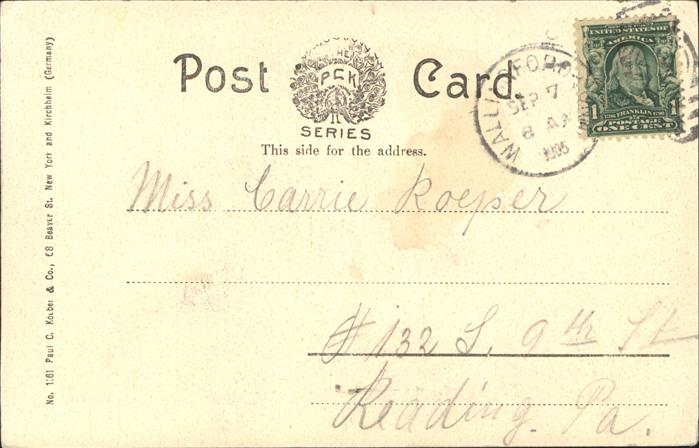 Post Card.
THE
P C K
SERIES
This side for the address.
WALLINGFORD
SEP 7
8 AM
UNITED STATES OF
AMERICA
1 FRANKLIN 1
POSTAGE
ONE CENT
Miss Carrie Roeper
# 132 S. 9th St
Reading. Pa.
No. 1161 Paul C. Koeber & Co., 68 Beaver St. New York and Kirchheim (Germany)